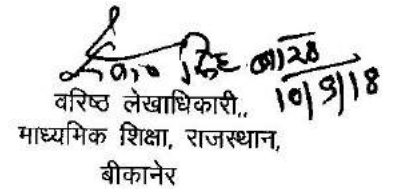 10/9/18
वरिष्ठ लेखाधिकारी,,
माध्यमिक शिक्षा, राजस्थान,
बीकानेर